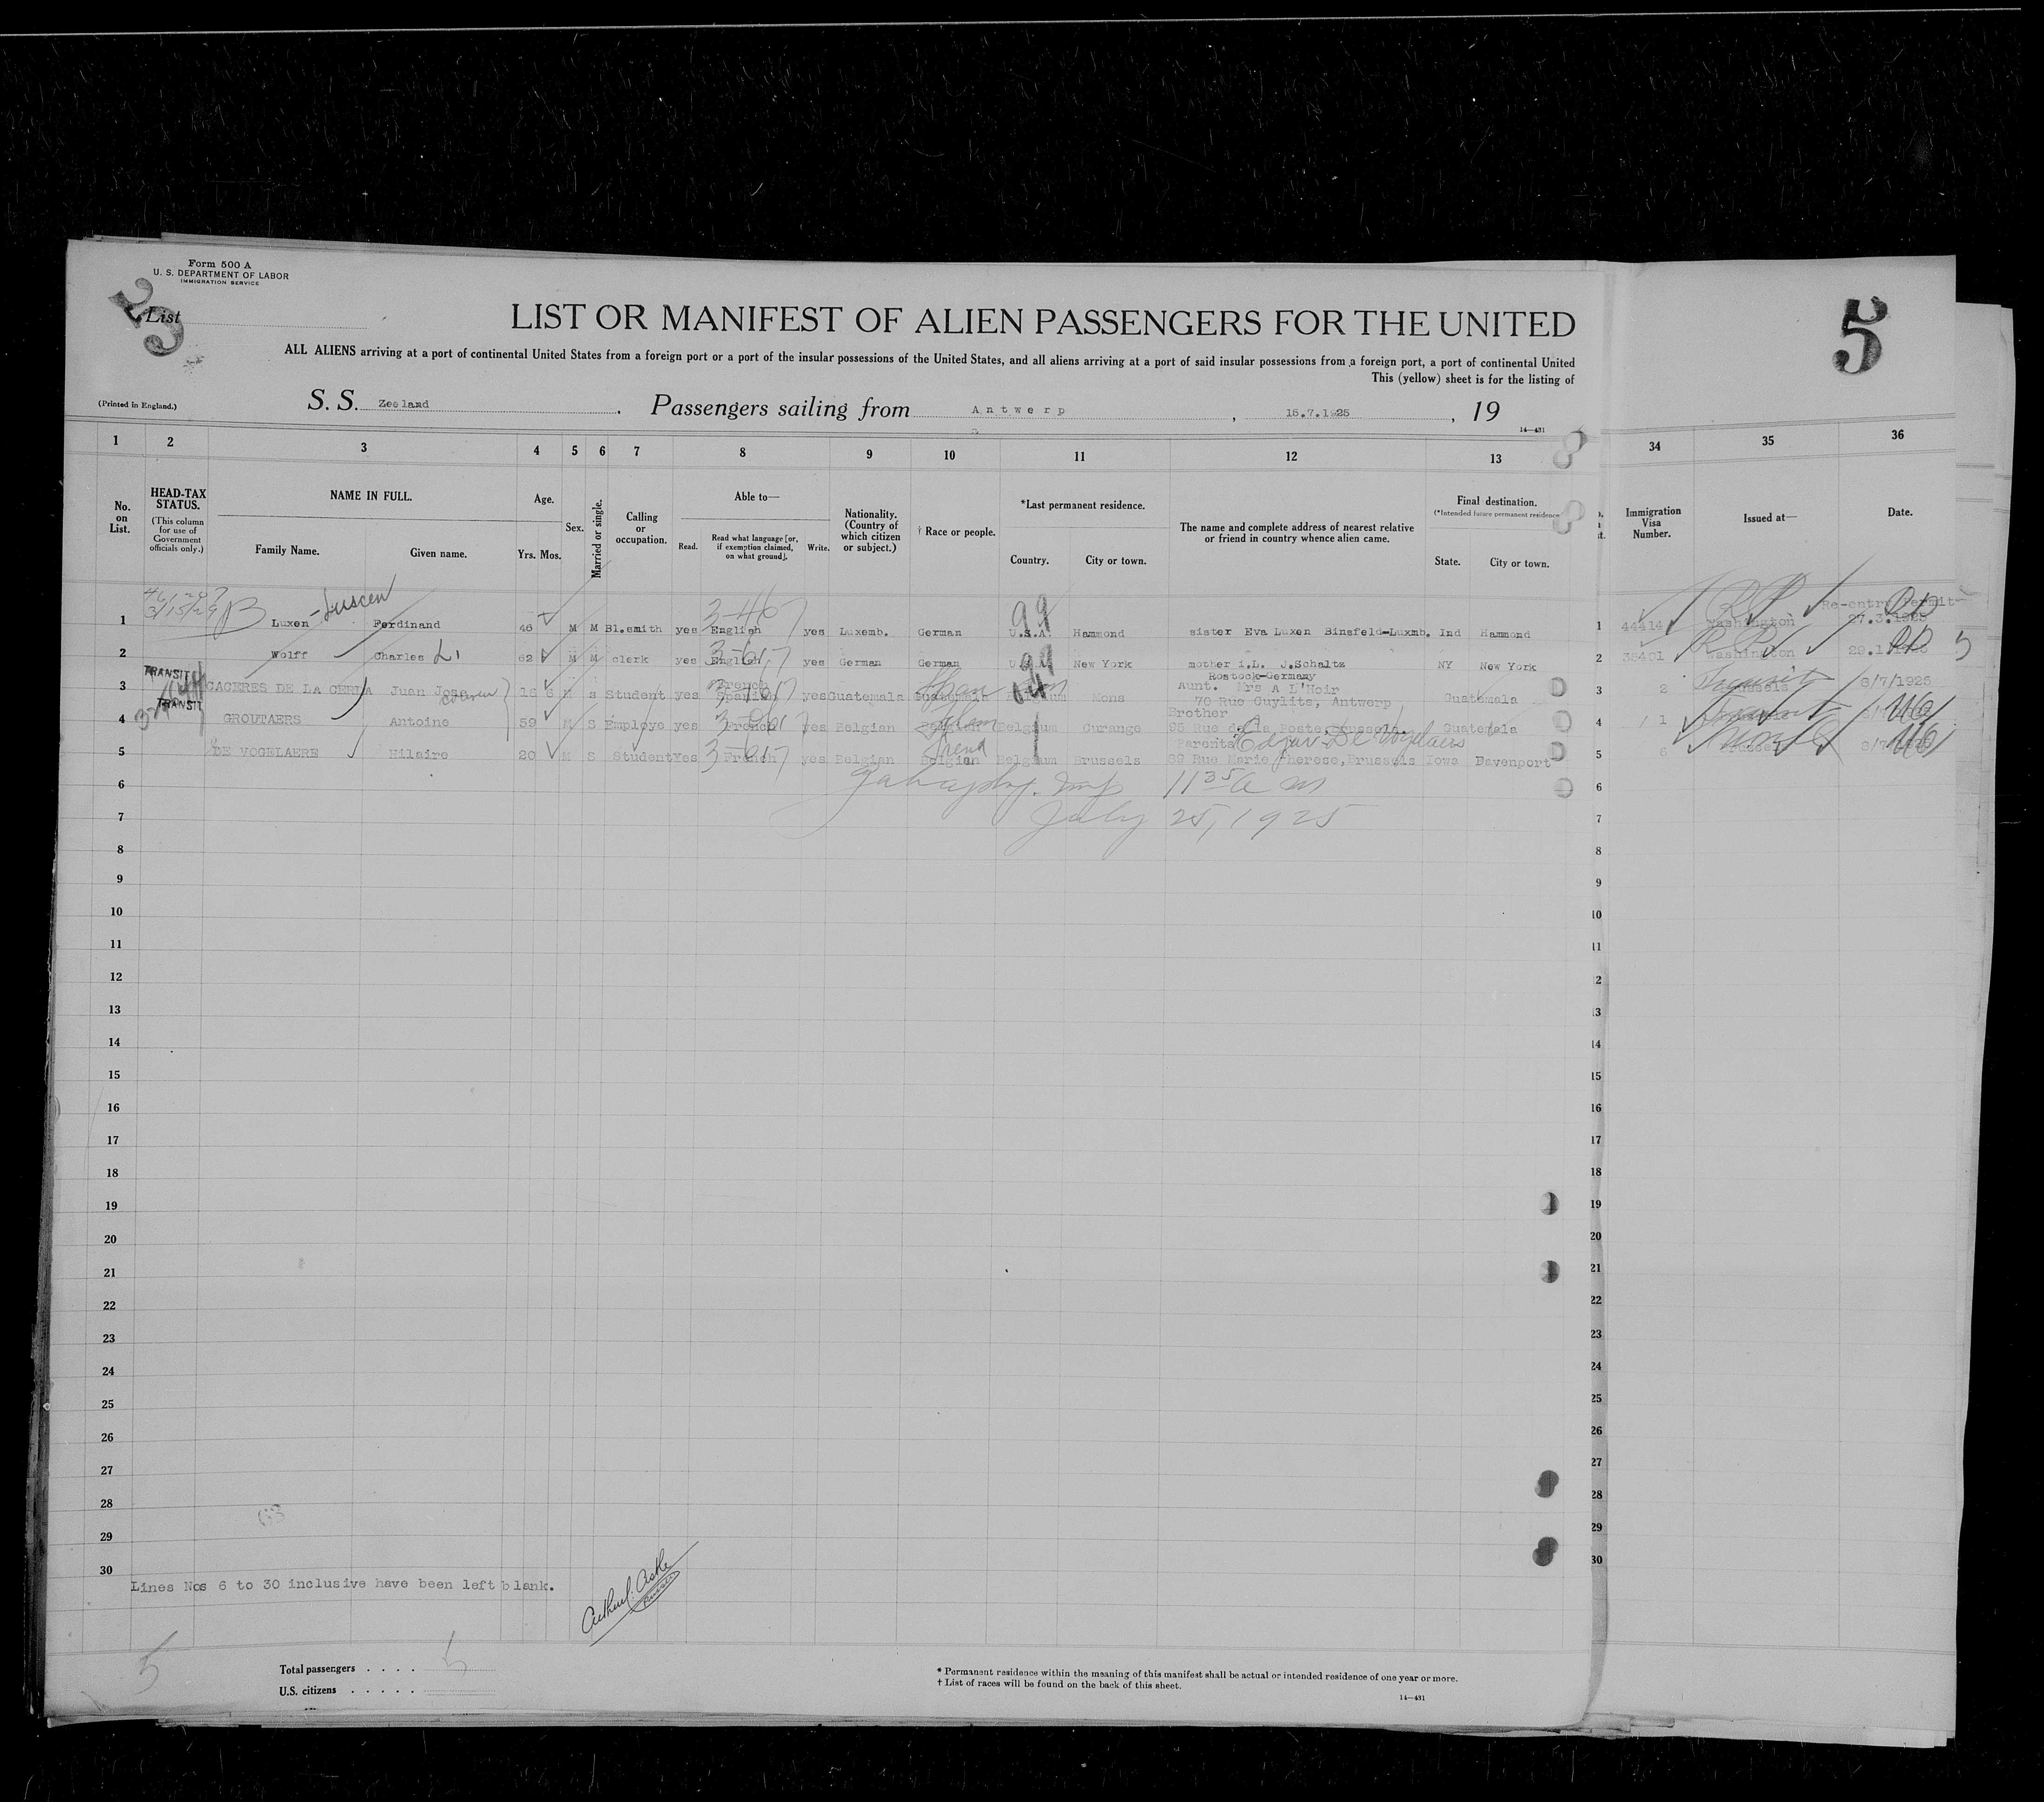 Form 500 A
U. S. DEPARTMENT OF LABOR
IMMIGRATION SERVICE
List
5
LIST OR MANIFEST OF ALIEN PASSENGERS FOR THE UNITED
ALL ALIENS arriving at a port of continental United States from a foreign port or a port of the insular possessions of the United States, and all aliens arriving at a port of said insular possessions from a foreign port, a port of continental United
This (yellow) sheet is for the listing of
(Printed in England.)
S. S. Zeeland. Passengers sailing from Antwerp, 15.7.1925, 19
14—431
1 2 3 4 5 6 7 8 9 10 11 12 13 34 35 36
No. on List.
HEAD-TAX STATUS. (This column for use of Government officials only.)
NAME IN FULL. Family Name. Given name.
Age. Yrs. Mos.
Sex.
Married or single.
Calling or occupation.
Able to— Read. Read what language [or, if exemption claimed, on what ground]. Write.
Nationality. (Country of which citizen or subject.)
† Race or people.
*Last permanent residence. Country. City or town.
The name and complete address of nearest relative or friend in country whence alien came.
Final destination. (*Intended future permanent residence State. City or town.
Immigration Visa Number.
Issued at—
Date.
1 Luxen Ferdinand 46 M M Bl.smith yes English yes Luxemb. German U.S.A. Hammond sister Eva Luxen Binsfeld-Luxmb. Ind Hammond 1 44414 Washington Re-entry Permit 27.3.1925
2 Wolff Charles L. 62 M M clerk yes English yes German German New York mother i.L. J.Schaltz Rostock-Germany NY New York 2 38401 Washington
TRANSIT
3 CACERES DE LA CERDA Juan Jose 6 M s Student yes French Spanish yes Guatemala Guatemala Mons Aunt. Mrs A L'Hoir 70 Rue Cuylits, Antwerp Guatemala 3 2 Transit 8/7/1925
TRANSIT
4 GROUTAERS Antoine 59 M S Employe yes French yes Belgian Belgian Belgium Curange Brother Guatemala 4 1
5 DE VOGELAERE Hilaire 20 M S Student Yes French yes Belgian Belgian Belgium Brussels Parents Edgar De Vogelaere 89 Rue Marie Therese, Brussels Iowa Davenport 5 6
6 11 35 a m 6
7 July 25, 1925 7
8 8
9 9
10 10
11 11
12 12
13 13
14 14
15 15
16 16
17 17
18 18
19 19
20 20
21 21
22 22
23 23
24 24
25 25
26 26
27 27
28 28
29 29
30 30
Lines Nos 6 to 30 inclusive have been left blank.
5
Total passengers . . . . 5
U.S. citizens . . . . .
* Permanent residence within the meaning of this manifest shall be actual or intended residence of one year or more.
† List of races will be found on the back of this sheet.
14—431